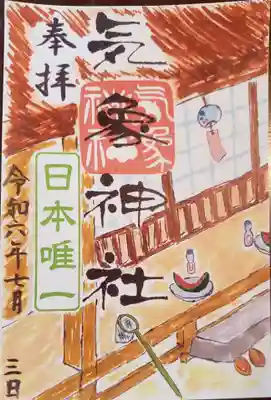 奉拝
気象神社
気象神社
日本唯一
令和六年七月
三日